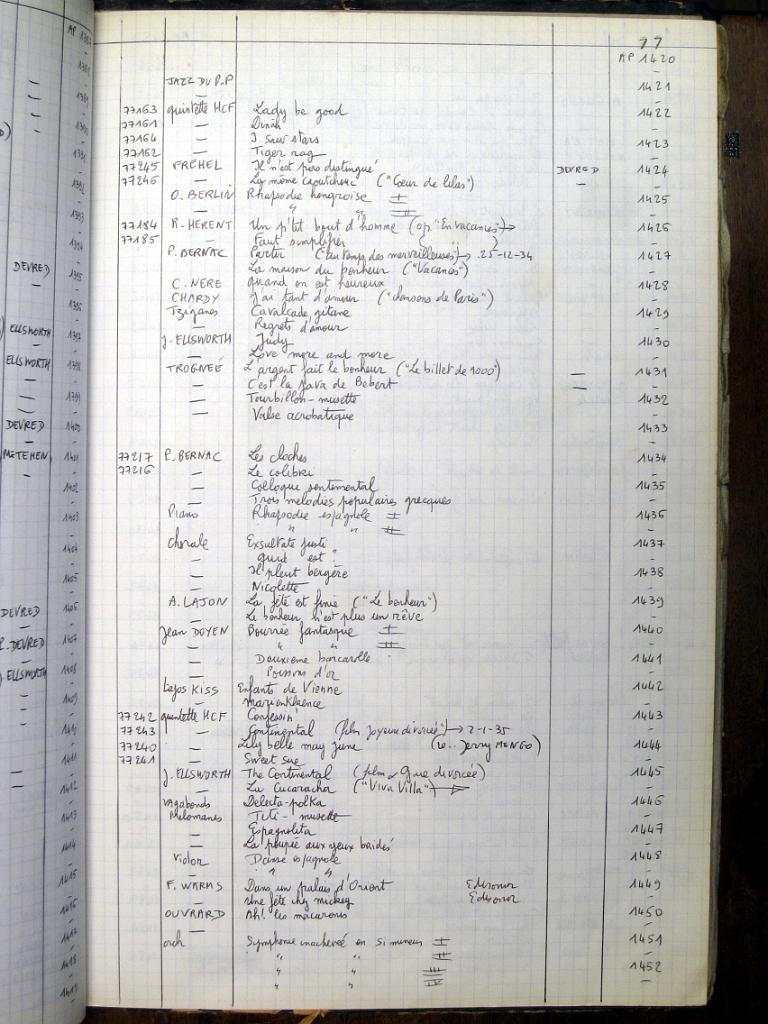 77
AP 1420
—
JAZZ DU P.P 1421
— —
77163 quintette HCF Lady be good 1422
77161 — Dinah —
77164 — I saw stars 1423
77162 — Tiger rag —
77245 FREHEL Il n'est pas distingué DEVRED 1424
77246 — La môme caoutchouc ("Cœur de lilas") — —
O. BERLIN Rhapsodie hongroise I 1425
— " " II —
77184 R. HERENT Un p'tit bout d'homme (op. "En vacances") → 1426
77185 — Faut simplifier —
P. BERNAC Partir → 25-12-34 1427
— La maison du bonheur ("Vacances") —
C. NERE quand on est heureux 1428
CHARDY J'ai tant d'amour ("chansons de Paris") —
Tziganes Cavalcade gitane 1429
— Regrets d'amour —
J. ELLSWORTH Judy 1430
— Love more and more —
TROGNEÉ L'argent fait le bonheur ("Le billet de 1000") — 1431
— C'est la java de Bébert — —
— Tourbillon-musette 1432
— Valse acrobatique —
1433
—
77217 P. BERNAC Les cloches 1434
77216 — Le colibri —
— Colloque sentimental 1435
— Trois mélodies populaires grecques —
Piano Rhapsodie espagnole I 1436
— " " II —
chorale Exsultate justi 1437
— quid est ? —
— Il pleut bergère 1438
— Nicolette —
A. LAJON La fête est finie ("Le bonheur") 1439
— Le bonheur n'est plus un rêve —
Jean DOYEN Bourrée fantasque I 1440
— " " II —
— Deuxième barcarolle 1441
— Poissons d'or —
Lajos KISS Enfants de Vienne 1442
— Marienklaence —
77242 quintette HCF Confessin' 1443
77243 — Continental (film Joyeux divorcée") → 2-1-35 —
77240 — Lily belle may june (Jerry MENGO) 1444
77241 — Sweet sue —
J. ELLSWORTH The Continental (film Gaie divorcée) 1445
— La Cucaracha ("Viva Villa") → —
Vagabonds Delecta-polka 1446
Mélomanes Titi-musette —
— Espagnolita 1447
— La poupée aux yeux bridés —
Violon Danse espagnole 1448
— " " —
F. WARMS Dans un palais d'Orient Edisonor 1449
— Une fête chez mickey Edisonor —
OUVRARD Ah!. les macaronis 1450
— —
orch Symphonie inachevée en si mineur I 1451
" " II —
" " III 1452
" " IV —
DEVRED
—
ELLSWORTH
ELLSWORTH
—
DEVRED
METEHEN
DEVRED
P. DEVRED
ELLSWORTH